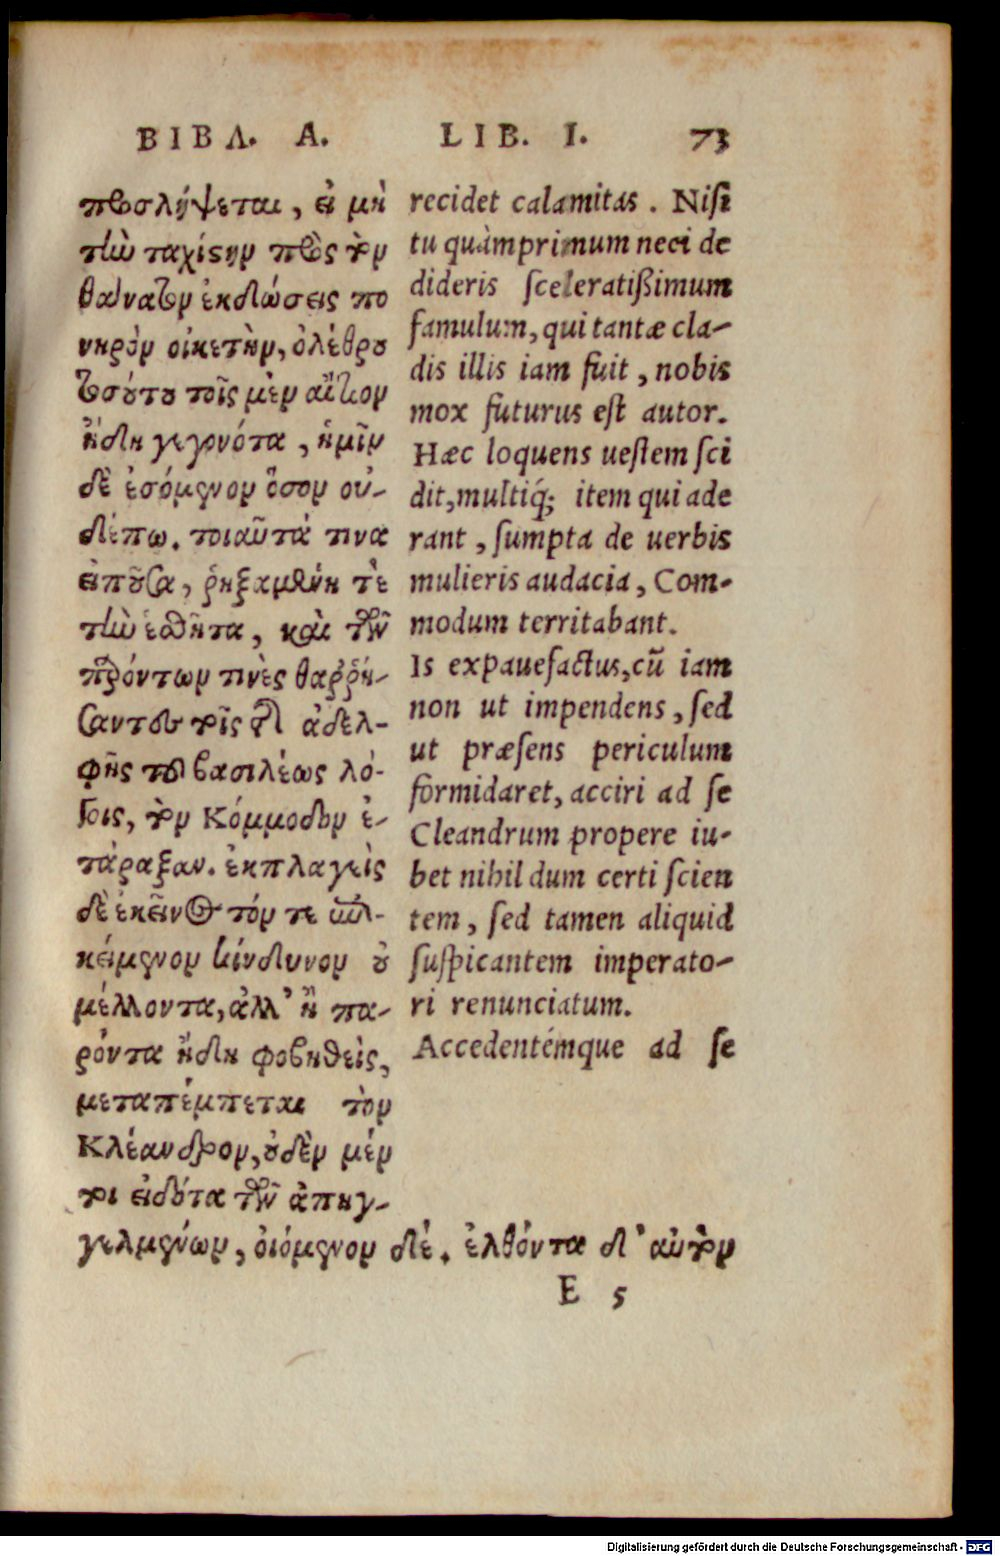 ΒΙΒΛ. Α. LIB. I. 73
προσλήψεται, εἰ μὴ
τὴν ταχίστην πρὸς τὸν
θάνατον ἐκδώσεις πο
νηρὸν οἰκέτην, ὀλέθρου
τοσούτου τοῖς μὲν αἴτιον
ἤδη γεγονότα, ἡμῖν
δὲ ἐσόμενον ὅσον οὐ-
δέπω. τοιαῦτά τινα
εἰποῦσα, ῥηξαμένη τὲ
τὴν ἐσθῆτα, καὶ τῶν
παρόντων τινὲς θαρρή-
σαντες τοῖς τῆς ἀδελ-
φῆς τοῦ βασιλέως λό-
γοις, τὸν Κόμμοδον ἐ-
τάραξαν. ἐκπλαγεὶς
δὲ ἐκεῖνος τόν τε ἐπι-
κείμενον κίνδυνον οὐ
μέλλοντα, ἀλλ' ἢ πα-
ρόντα ἤδη φοβηθεὶς,
μεταπέμπεται τὸν
Κλέανδρον, οὐδὲν μέν
τοι εἰδότα τῶν ἀπηγ-
γελμένων, οἰόμενον δέ. ἐλθόντα δ' αὐτὸν
recidet calamitas. Nisi
tu quàmprimum neci de
dideris sceleratißimum
famulum, qui tantæ cla-
dis illis iam fuit, nobis
mox futurus est autor.
Hæc loquens uestem sci
dit, multiq́; item qui ade
rant, sumpta de uerbis
mulieris audacia, Com-
modum territabant.
Is expauefactus, cũ iam
non ut impendens, sed
ut præsens periculum
formidaret, acciri ad se
Cleandrum propere iu-
bet nihil dum certi scien
tem, sed tamen aliquid
suspicantem imperato-
ri renunciatum.
Accedentémque ad se
E 5
Digitalisierung gefördert durch die Deutsche Forschungsgemeinschaft - DFG